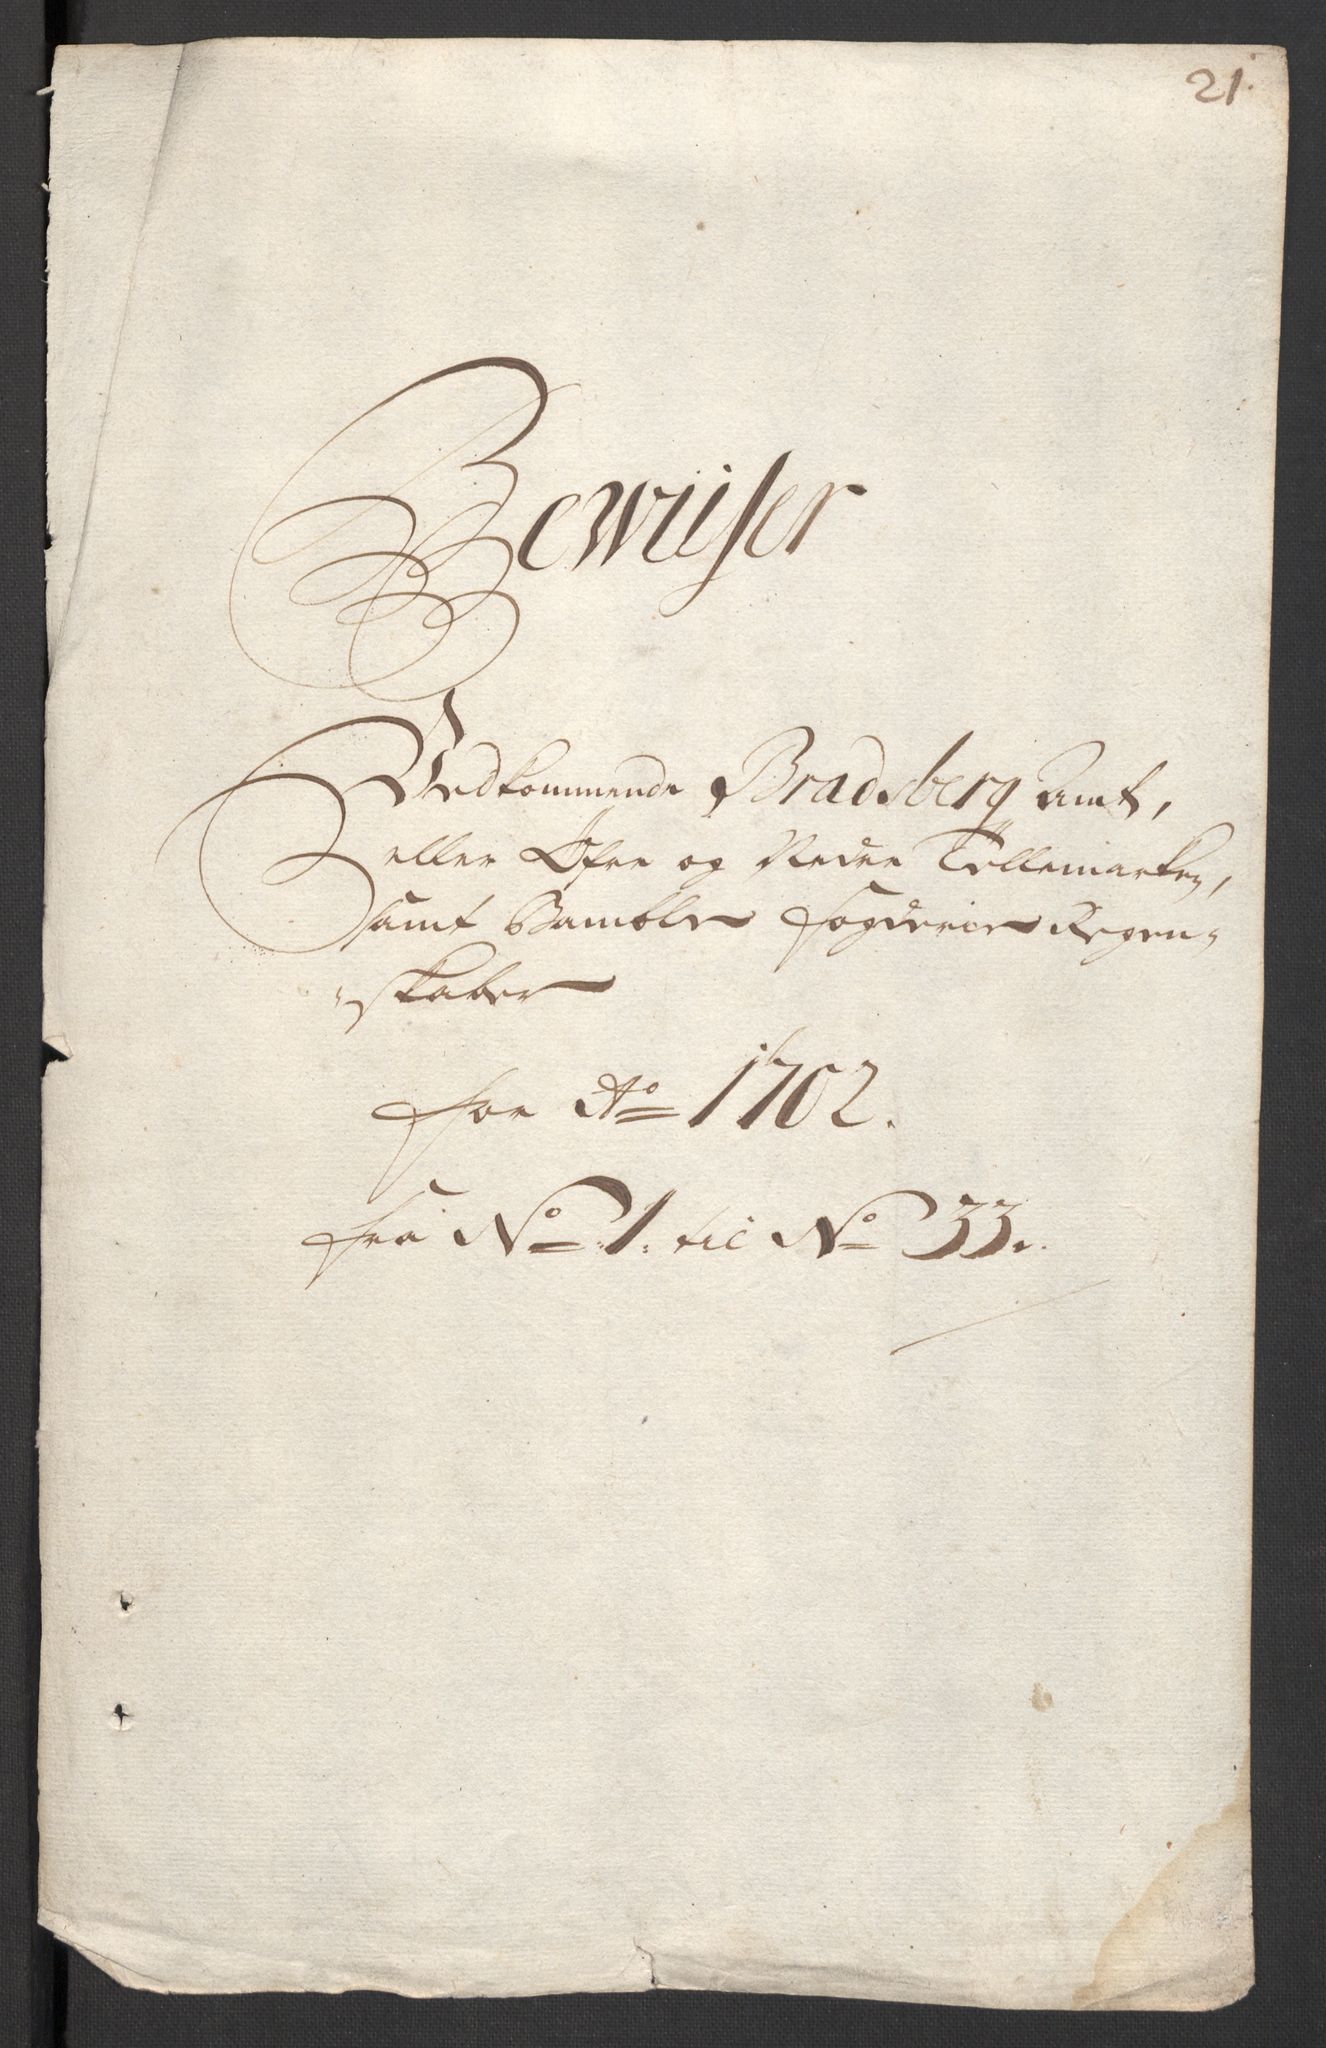 21.
Bewiiser
Vedkommende Bradsberg Amt,
eller Øfre og Nedre Tellemarken,
samt Bamble fogderier Regen-
skaber
for Ao 1702.
fra No 1. til No 33.